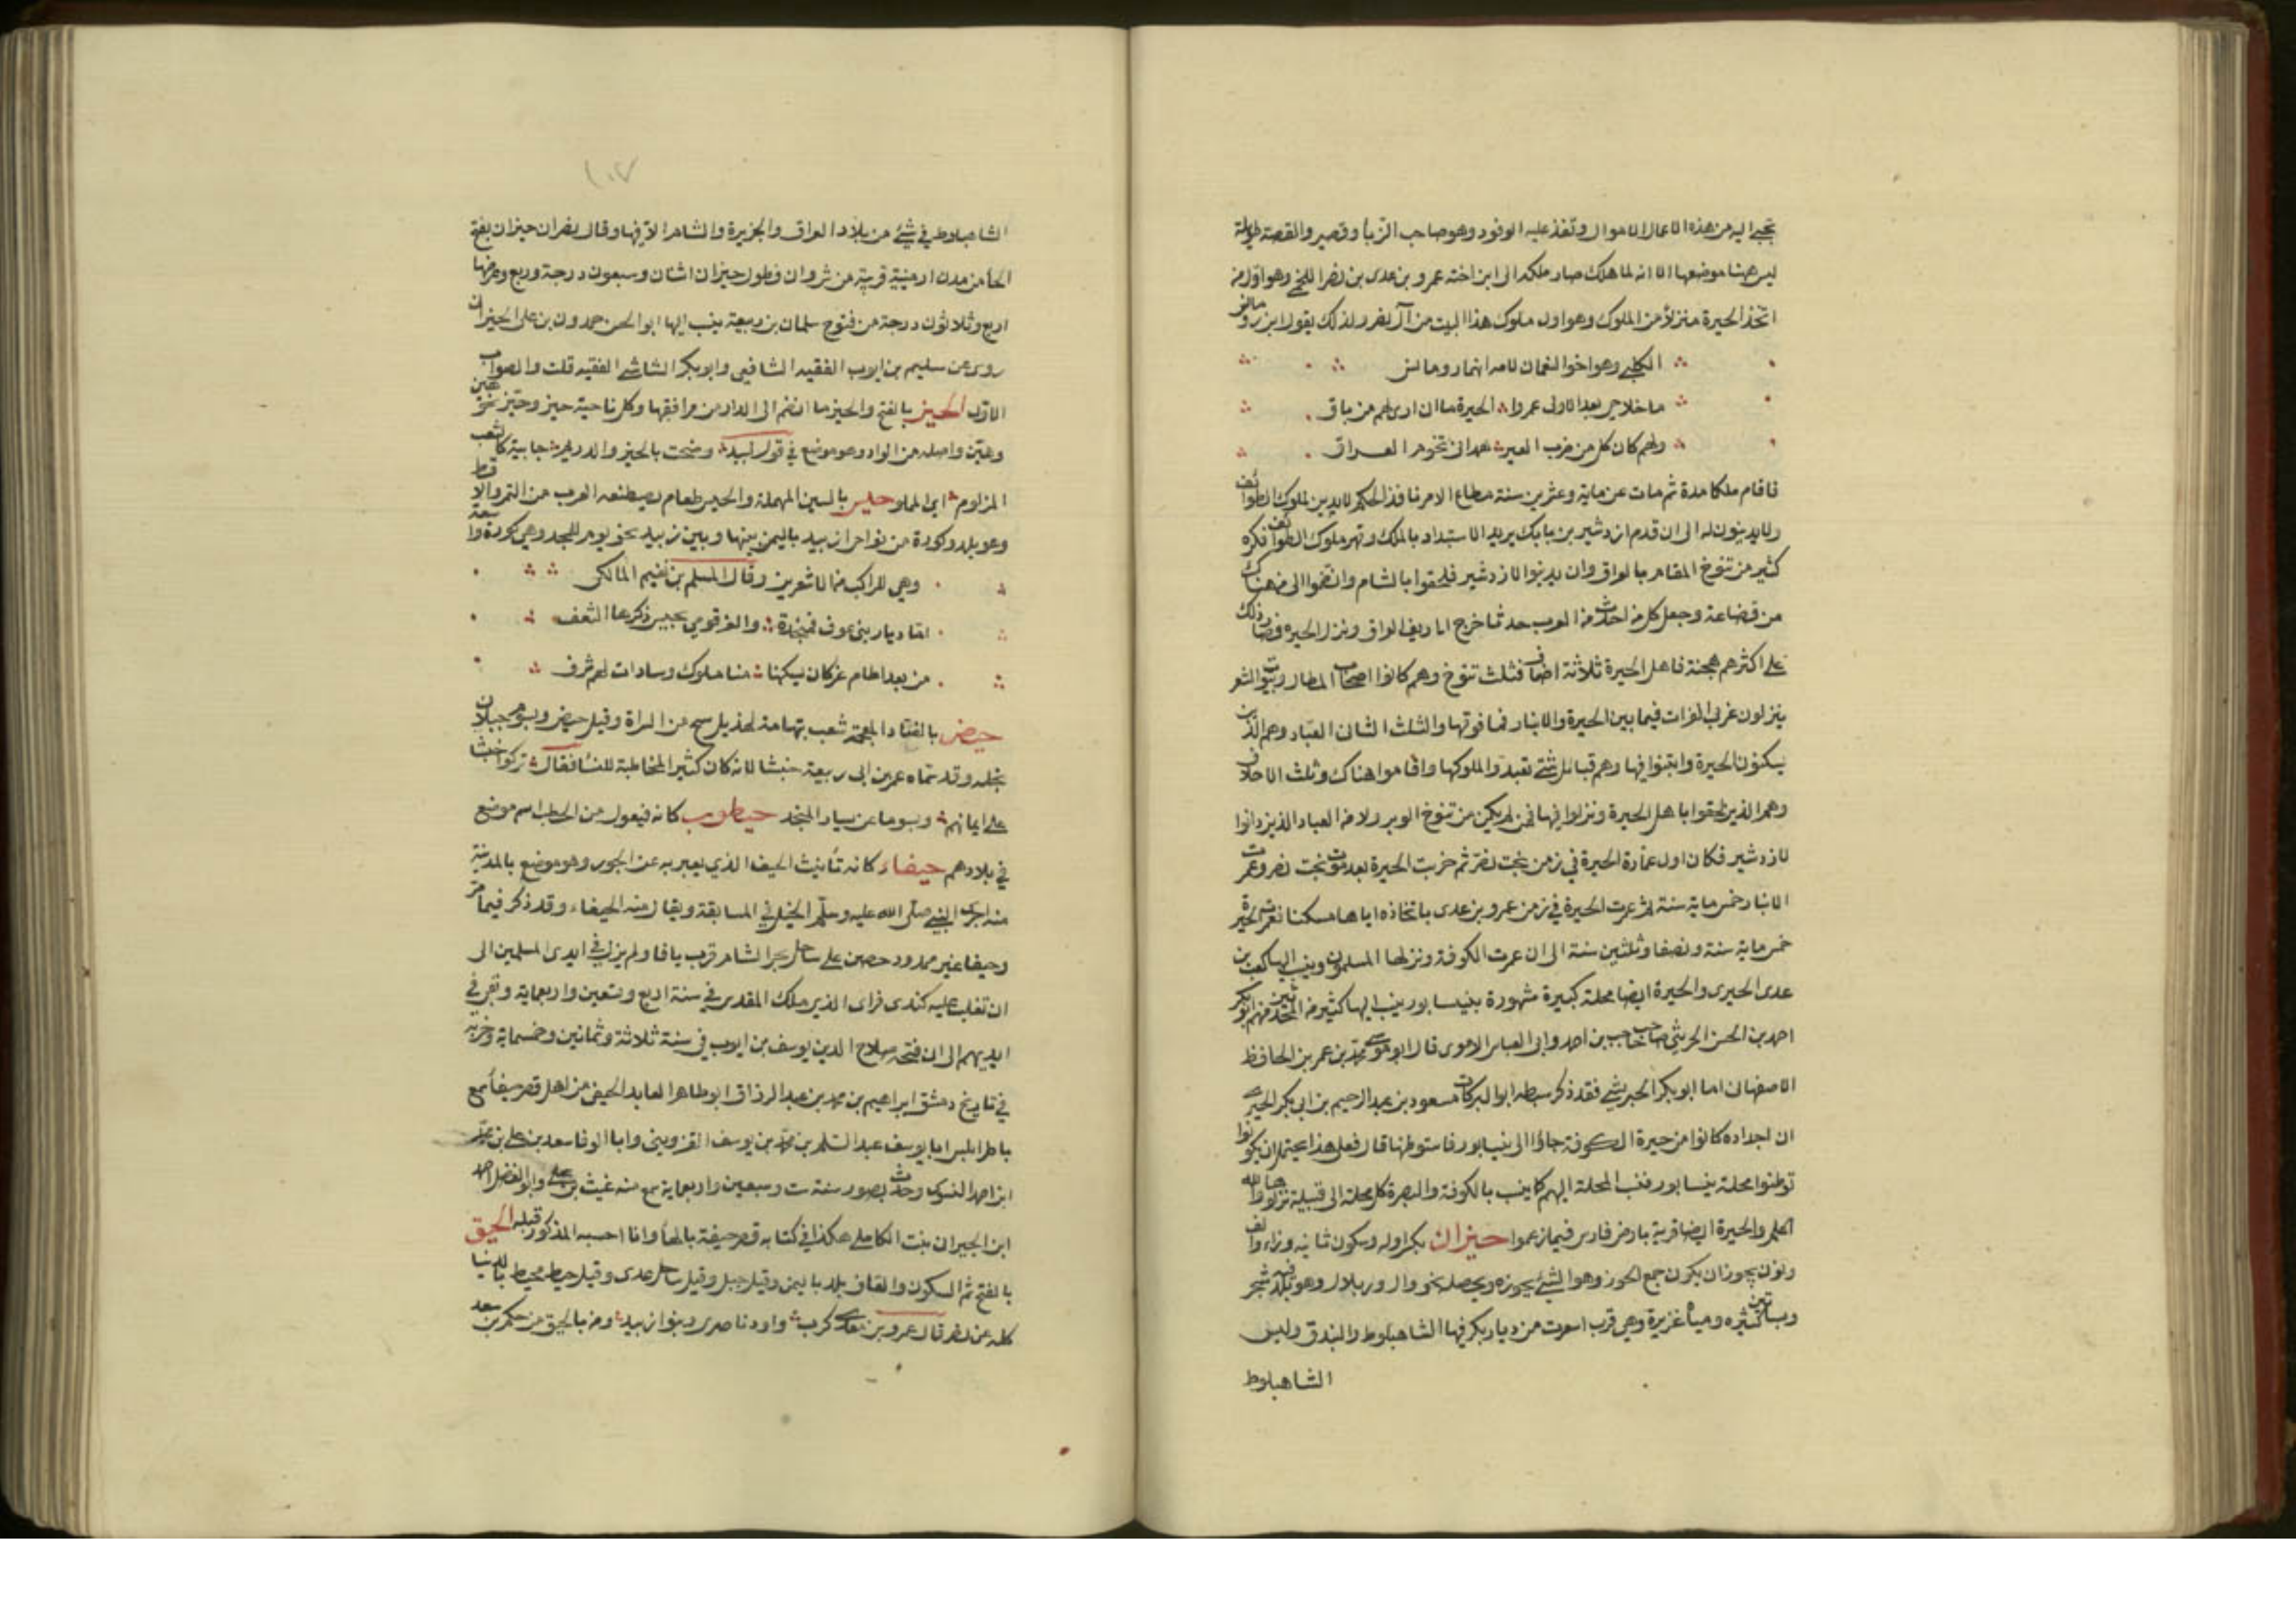 تجبى اليه من هذه الاعمال الاموال وتفد عليه الوفود وهو صاحب الزبا وقصير والقصة طويلة
ليس ههنا موضعها الا انه لما هلك صار ملكه الى ابن اخته عمرو بن عدى بن نصر اللخمي وهو اول من
اتخذ الحيرة منزلا من الملوك وهو اول ملوك هذا البيت من آل نصر ولذلك يقول ابن رومانس
الكلبي وهو اخو النعمان لامه امهما رومانس
ما فلاحي بعد الاولى عمروا الحيرة ما ان ارى لهم من باق
ولهم كان كل من ضرب العير بنجد الى تخوم العراق
فاقام ملكا مدة ثم مات عن ماية وعشرين سنة مطاع الامر نافذ الحكم لا يدين لملوك الطوائف
ولا يدينون له الى ان قدم ازدشير بن بابك يريد الاستبداد بالملك وقهر ملوك الطوائف فكره
كثير من تنوخ المقام بالعراق وان يدينوا لازدشير فلحقوا بالشام وانضموا الى من هناك
من قضاعة وجعل كل من احدث من العرب حدثا خرج الى ريف العراق ونزل الحيرة فصار ذلك
على اكثرهم هجنة فاهل الحيرة ثلاثة اصناف فثلث تنوخ وهم كانوا اصحاب المظال وبيوت الشعر
ينزلون غربي الفرات فيما بين الحيرة والانبار فما فوقها والثلث الثاني العباد وهم الذين
سكنوا الحيرة وابتنوا فيها وهم قبائل شتى تعبدوا لملوكها واقاموا هناك وثلث الاحلاف
وهم الذين لحقوا باهل الحيرة ونزلوا فيها فمن لم يكن من تنوخ الوبر ولا من العباد الذين دانوا
لازدشير فكان اول عمارة الحيرة في زمن بخت نصر ثم خربت الحيرة بعد موت بخت نصر وعمرت
الانبار خمس ماية سنة ثم عمرت الحيرة في زمن عمرو بن عدى باتخاذه اياها مسكنا فعمرت الحيرة
خمس ماية سنة ونصفا وثلثين سنة الى ان عمرت الكوفة ونزلها المسلمون وينسب اليها كعب بن
عدى الحيرى والحيرة ايضا محلة كبيرة مشهورة بنيسابور ينسب اليها كثير من المحدثين منهم ابو بكر
احمد بن الحسن الحرشي صاحب حاجب بن احمد وابي العباس الاموى قال ابو موسى محمد بن عمر بن الحافظ
الاصفهاني اما ابو بكر الحيري فقد ذكر سبطه ابو البركات مسعود بن عبد الرحيم بن ابي بكر الحيري
ان اجداده كانوا من حيرة الكوفة جاؤا الى نيسابور فاستوطنوها قال فعلى هذا يحتمل ان يكونوا
توطنوا محلة بنيسابور فنسب المحلة اليهم كما ينسب بالكوفة والبصرة كل محلة الى قبيلة نزلوها والله
اعلم والحيرة ايضا قرية بارض فارس فيما زعموا حيزان بكسر اوله وسكون ثانيه وزاء والف
ونون يجوز ان يكون جمع الحوز وهو الشيء يحوزه ويحصله نحو وال وهو بلد فيه شجر
وبساتين كثيرة ومياه غزيرة وهي قرب اسعرت من ديار بكر فيها الشاهبلوط والبندق وليس
الشاهبلوط
١٠٧
الشاهبلوط في شيء من بلاد العراق والجزيرة والشام الا فيها وقال نصر ان حيزان بفتح
الحاء من مدن ارمينية قريبة من شروان فطول حيزان اثنان وسبعون درجة وربع وعرضها
اربع وثلاثون درجة من فتوح سلمان بن ربيعة ينسب اليها ابو الحسن حمدون بن على الحيزانى
روى عن سليم بن ايوب الفقيه الشافعي وابو بكر الشاشي الفقيه قلت والصواب
الاول الحيز بالفتح والحيز ما انضم الى الدار من مرافقها وكل ناحية حيز وحيز نحو هين
وهين واصله من الواو وهو موضع في قول لبيد وضحت بالحيز والدريم جابية كالثعب
المزلوم اى المملو حيس بالسين المهملة والحيس طعام يصطنعه العرب من التمر والاقط
وهو بلد وكورة من نواحى زبيد باليمن بينها وبين زبيد نحو يوم للمجد وهي كورة واسعة
وهي للراكب من الاشعرين وقال المسلم بن نعيم المالكى
اما ديار بنى عوف فمنجدة والعز قومي بحيس ذكرها الشعف
من بعد اطام عز كان يسكنها منا ملوك وسادات لهم شرف
حيض بالضاد المعجمة شعب بتهامة لهذيل سح من السراة وقيل حيض ويسوم جبلان
بنجلد وقد سماه عمر بن ابى ربيعة خبشا لانه كان كثير المخاطبة للنساء فقال تركوا خبشا
على ايمانهم ويسوما عن يسار المنجد حيطوب كانه فيعول من الحطب اسم موضع
في بلادهم حيفاء كانه تأنيث الحيف الذي يعبر به عن الجور وهو موضع بالمدينة
منه اجرى النبي صلى الله عليه وسلم الخيل في المسابقة ويقال منه الحيفاء وقد ذكر فيما مر
وحيفا غير ممدود حصن على ساحل بحر الشام قرب يافا ولم يزل في ايدى المسلمين الى
ان تغلب عليه كندى فرى الذي ملك المقدس في سنة اربع وتسعين واربعماية وبقي في
ايديهم الى ان فتحه صلاح الدين يوسف بن ايوب في سنة ثلاثة وثمانين وخمسماية وخربه
في تاريخ دمشق ابراهيم بن محمد بن عبد الرزاق ابو طاهر العابد الحيفى من اهل قصر حيفا سمع
باطرابلس ابا يوسف عبد السلم بن محمد بن يوسف القزوينى وابا الوفا سعد بن على بن محمد
ابن احمد النسوى وحدث بصور سنة ست وسبعين واربعماية سمع منه غيث بن على وابو الفضل احمد
ابن الحسين بن بنت الكاملي هكذا في كتابه قصر حيفة بالهاء وانا احسبه المذكور قبله الحيق
بالفتح ثم السكون والقاف بلد باليمن وقيل جبل وقيل ساحل عدى وقيل حيط محيط بالدنيا
كله عن نصر قال عمرو بن معدى كرب واود ناصرى وبنو زبيد ومن بالحيق من حكم بن سعد